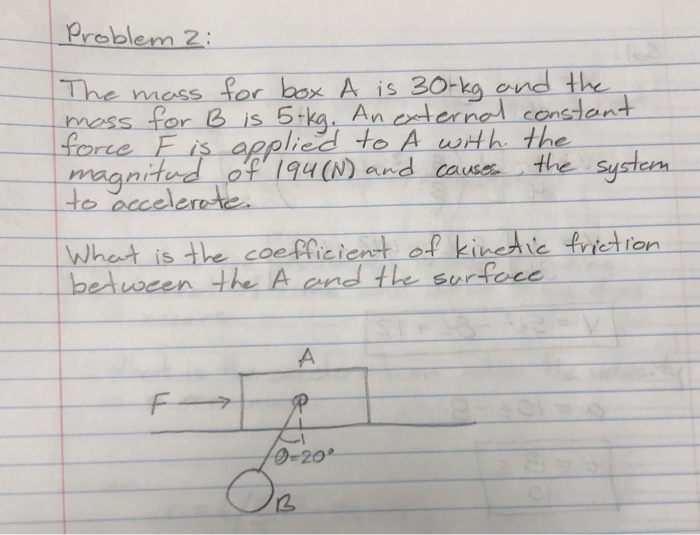 Problem 2:
The mass for box A is 30-kg and the
mass for B is 5-kg. An external constant
force F is applied to A with the
magnitud of 194(N) and causes the system
to accelerate.
What is the coefficient of kinetic friction
between the A and the surface
A
F
θ=20°
B